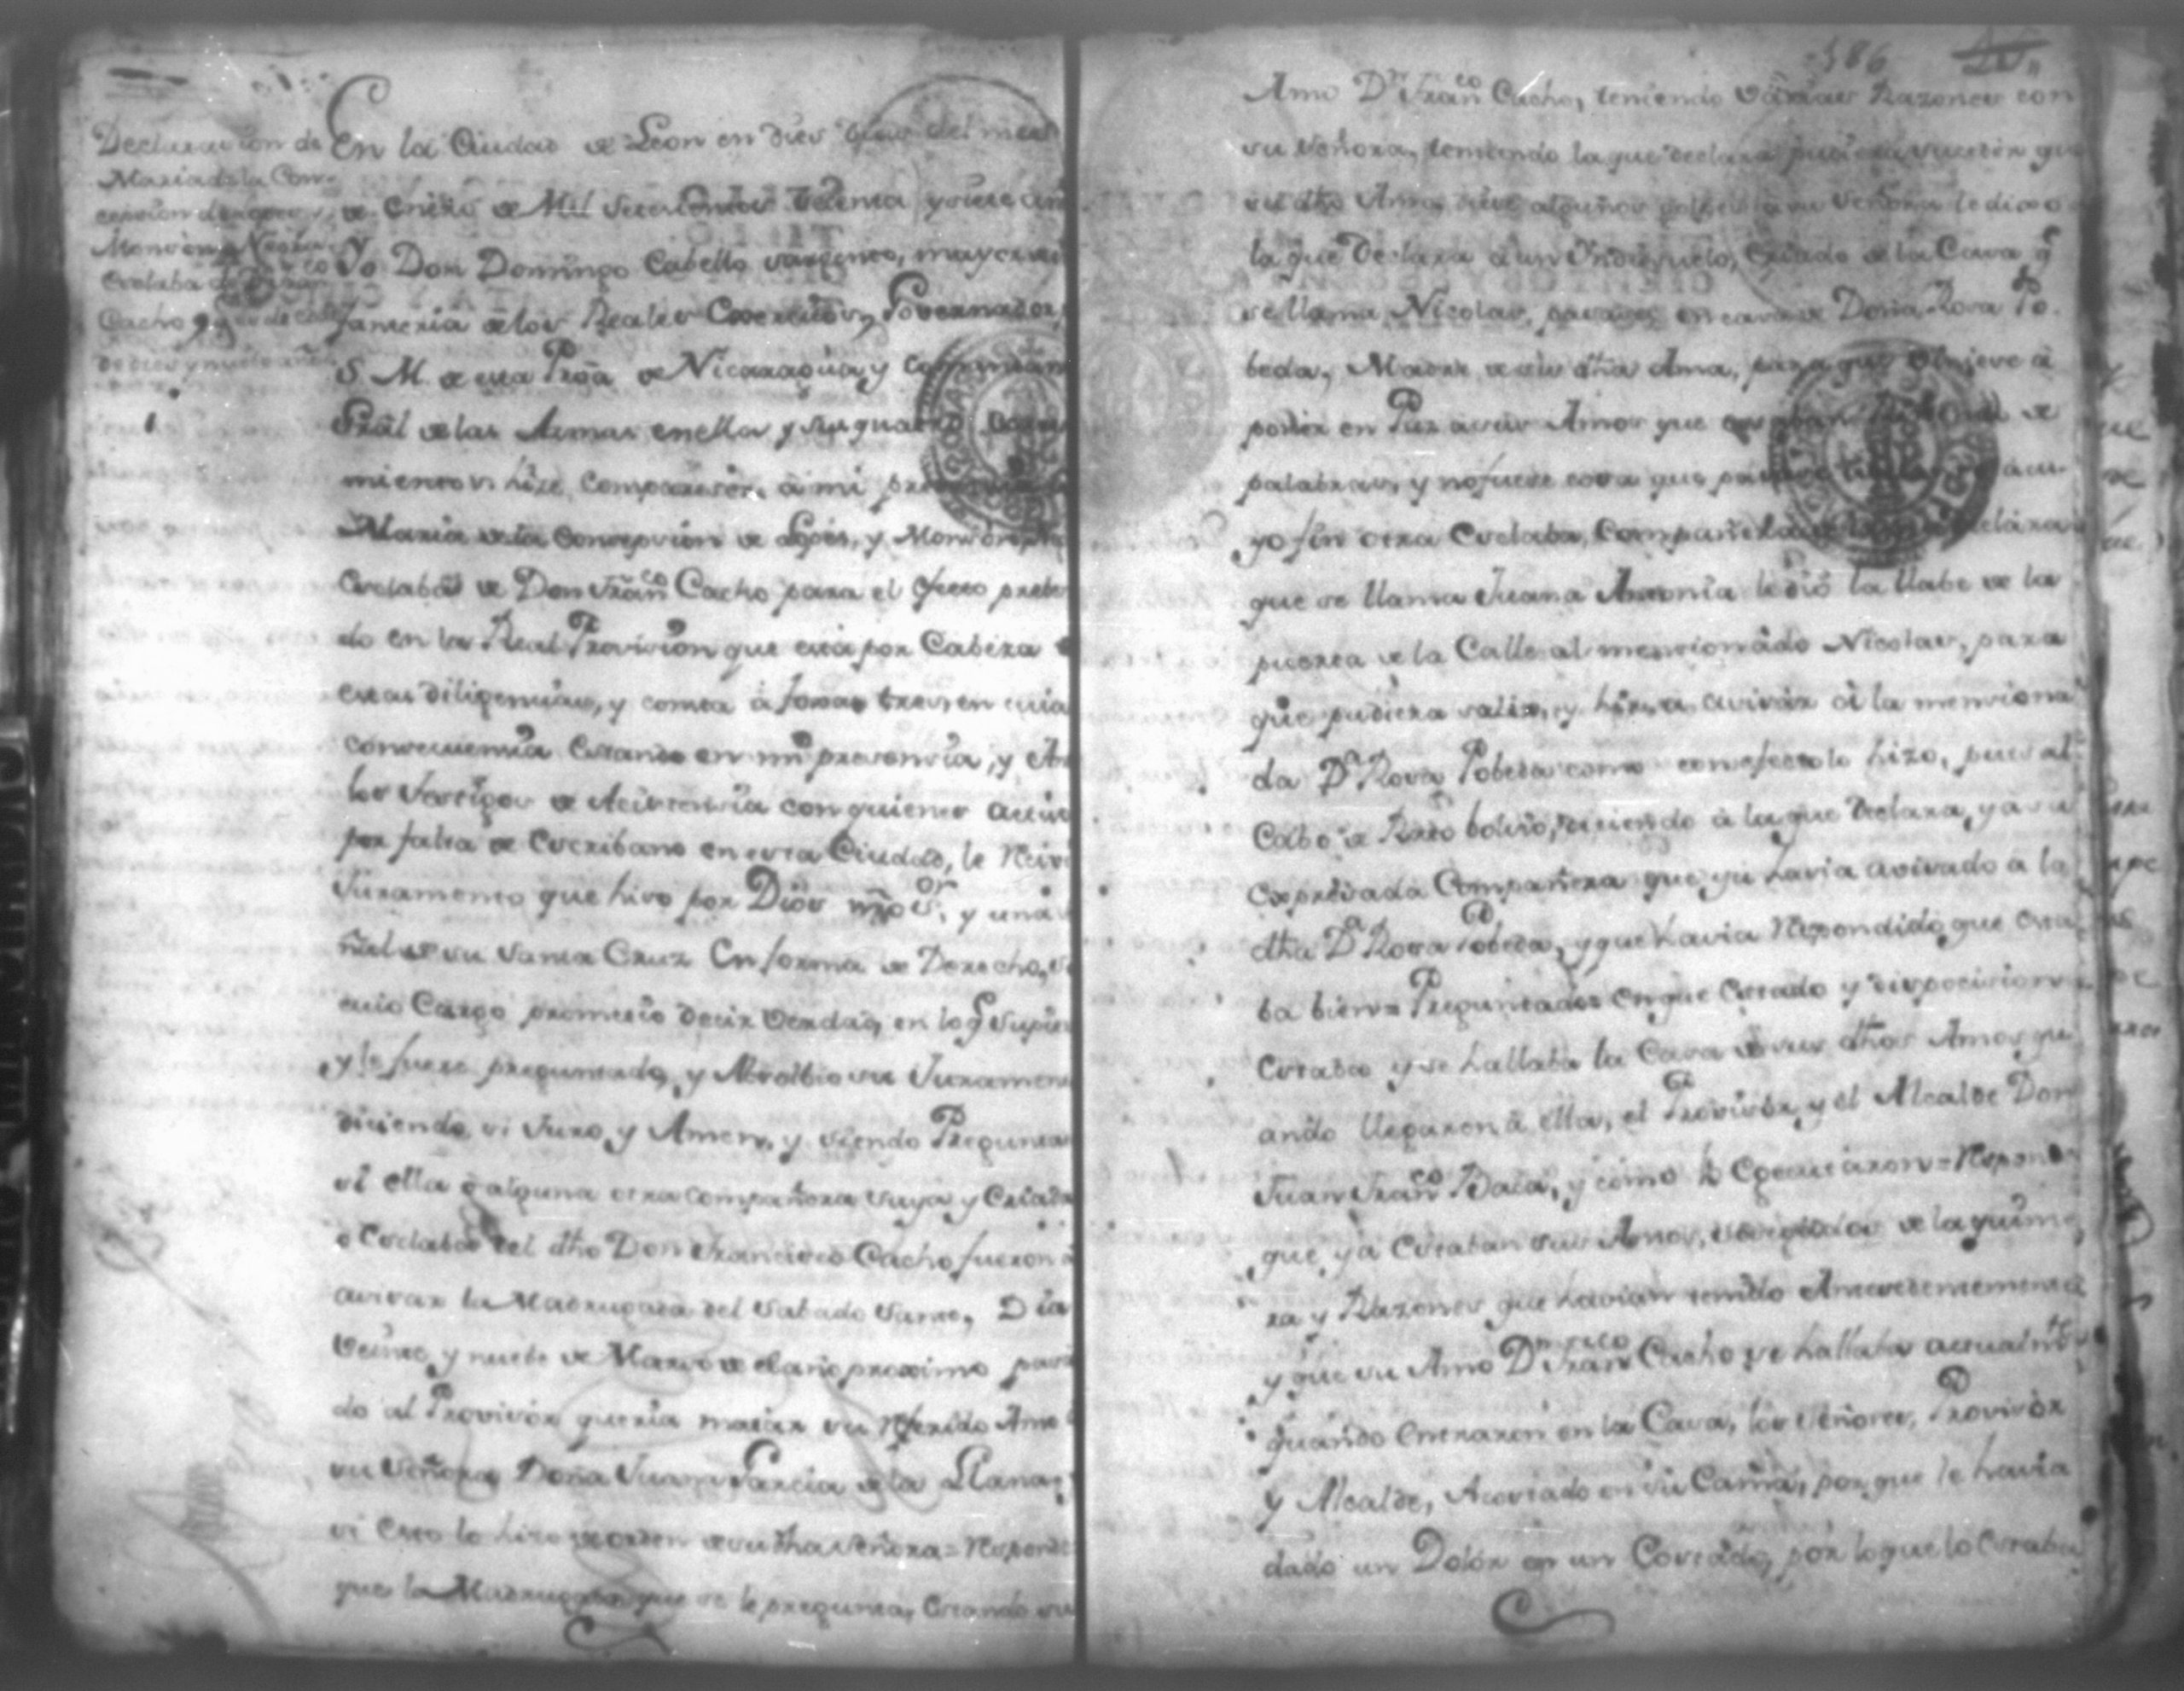 Declaracion de
Maria de la Con-
cepcion
Monrroy, Negra
Esclaba de D.n Fran.co
Cacho de edad
de dies y nuebe años
1
En la Ciudad de Leon en dies dias del mes
de Enero de Mil setecientos setenta y siete añ
Yo Don Domingo Cabello sargento, mayor de
fanteria de los Reales Exercitos, Governador,
S. M. de esta Proã de Nicaragua y Comman
Grãl de las Armas en ella y
mientos hize comparecer, a mi
Maria de la Concepcion de y Monrroy
Esclabas de Don Franco Cacho para el efecto preve
do en la Real Provision que esta por Cabeza
estas diligencias, y consta à foxas tres, en cuia
consecuencia Estando en mi presencia, y
los testigos de Asistencia con quienes actuo
por falta de Escribano en esta Ciudad, le Recivi
Juramento que hiso por Dios nr̃o Sr, y una
ñal de su Santa Cruz En forma de Derecho,
cuio Cargo prometio decir verdad, en lo q supiere
y le fuere preguntado, y Absolbio su Juramen
diciendo, si Juro, y Amen, y siendo Pregunta
si ella o alguna otra compañera suya y Criada
o Esclabas del dho Don Francisco Cacho fueron à
avisar la Madrugada del Sabado Santo, Dia
Veinte y nuebe de Marzo de el año proximo pasa
do al Provisor queria matar su Referido Amo
su Señora Doña Juana Garcia de la Llana,
si Esto lo hizo de orden de su dha Señora = Responde
que la Madrugada que se le pregunta, Estando su
186
Amo Dn Franco Cacho, teniendo varias Razones con
su Señora, temiendo la que declara pudiera suceder que
el dho Amo diese algunos golpes a su Señora le dixo
la que Declara à un Yndisuelo, Criado de la Casa q
se llama Nicolas, pasase, en casa de Doña Rosa Po-
beda, Madre de su dha Ama, para que viniese à
poner en Paz a sus Amos que estaban de
palabras, y no fuese cosa que acu-
yo fin otra Esclaba, Compañera de la que declara
que se llama Juana Antonia le dió la llabe de la
puerta de la Calle al mencionado Nicolas, para
que pudiera salir, y hir, a avisar à la menciona
da Da Rosa Pobeda como con efecto lo hizo, pues al
Cabo de Rato bolvio, diciendo à la que Declara, y a su
Expresada Compañera que ya havia avisado a la
dha Da Rosa Pobeda, y que havia Respondido, que Esta
ba bien = Preguntada En que Estado y disposicion
Estaba y se hallaba la Casa de sus dhos Amos qu
ando llegaron à ella, el Provisor, y el Alcalde Don
Juan Franco Baca, y como lo Egecutaron = Respond
que, ya Estaban sus Amos, sosegados de la quime
ra y Razones que havian tenido Antecedentemente
y que su Amo Dn Franco Cacho se hallaba actualmte
quando Entraron en la Casa, los señores, Provisor
y Alcalde, Acostado en su Cama, porque le havia
dado un Dolor en un Costado, por lo que lo Estaba